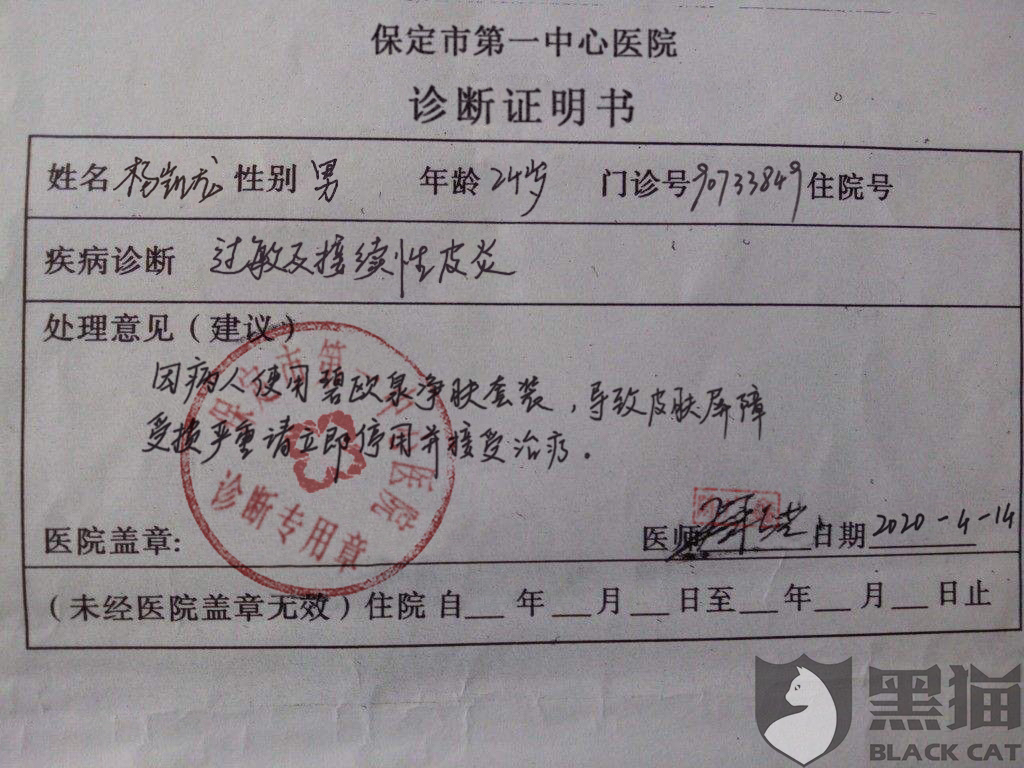 保定市第一中心医院
诊断证明书
姓名 杨凯龙 性别 男 年龄 24岁 门诊号 90733849 住院号
疾病诊断 过敏及接续性皮炎
处理意见(建议)
因病人使用碧欧泉净肤套装,导致皮肤屏障
受损严重请立即停用并接受治疗。
保定市第一中心医院
诊断专用章
医院盖章: 医师 日期 2020-4-14
(未经医院盖章无效)住院 自__年__月__日至__年__月__日止
黑猫
BLACK CAT